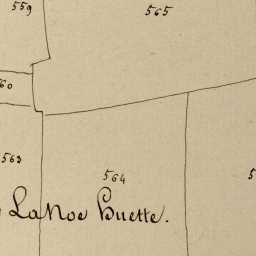 559
565
60
563
564
5
La Noe Huette.